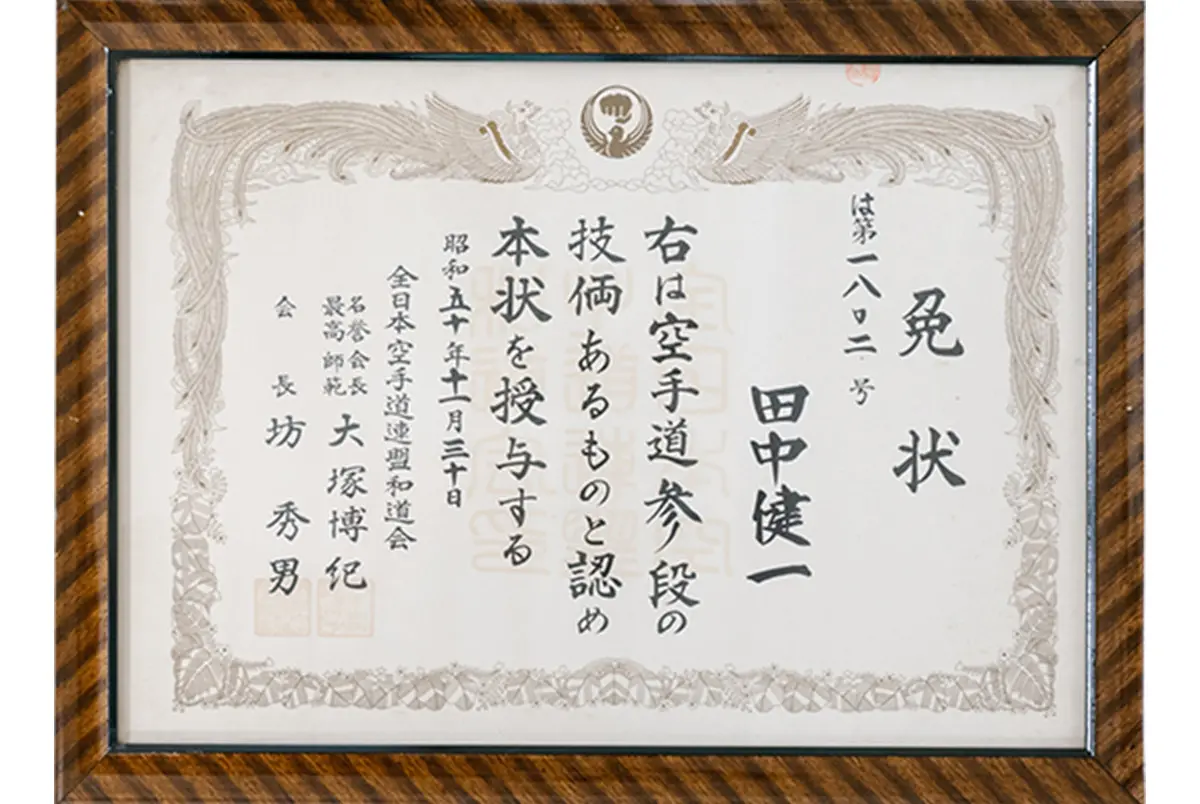 免状
は第一八〇二号
田中健一
右は空手道参段の
技倆あるものと認め
本状を授与する
昭和五十年十一月三十日
全日本空手道連盟和道会
名誉会長
最高師範 大塚博紀
会長 坊秀男